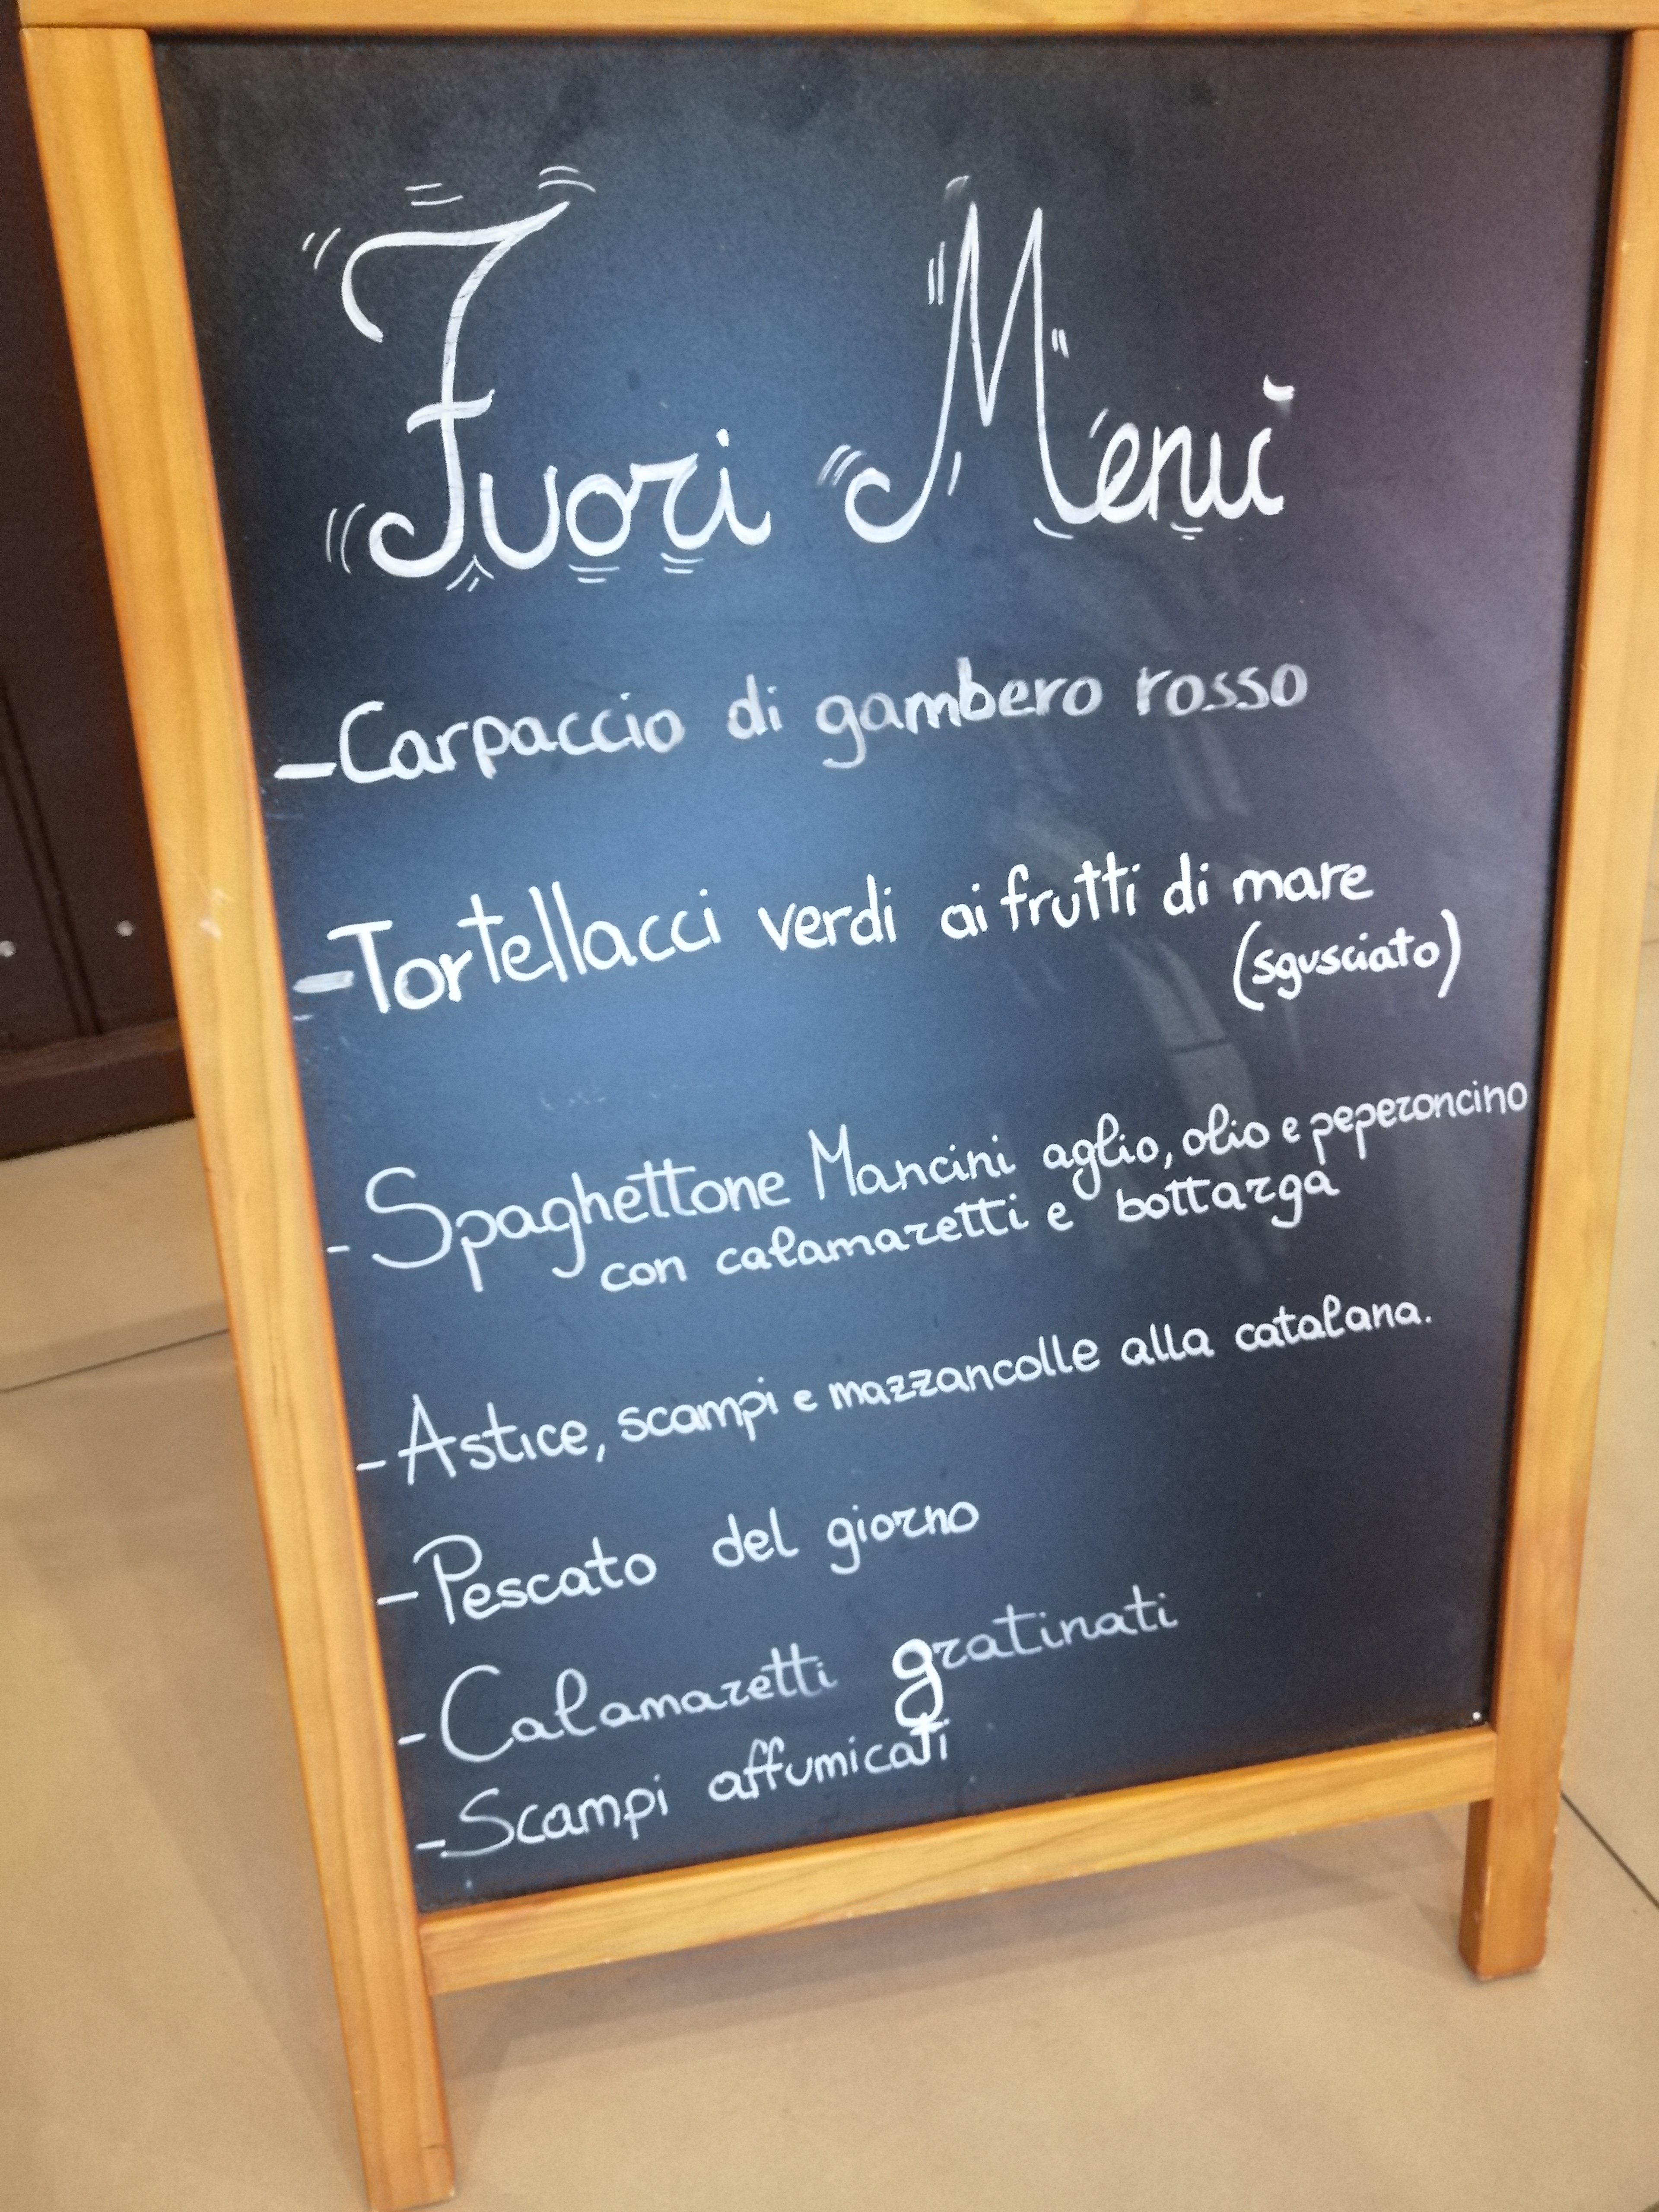 Fuori Menù
-Carpaccio di gambero rosso
-Tortellacci verdi ai frutti di mare
(sgusciato)
-Spaghettone Mancini aglio, olio e peperoncino
con calamaretti e bottarga
-Astice, scampi e mazzancolle alla catalana.
-Pescato del giorno
-Calamaretti gratinati
-Scampi affumicati